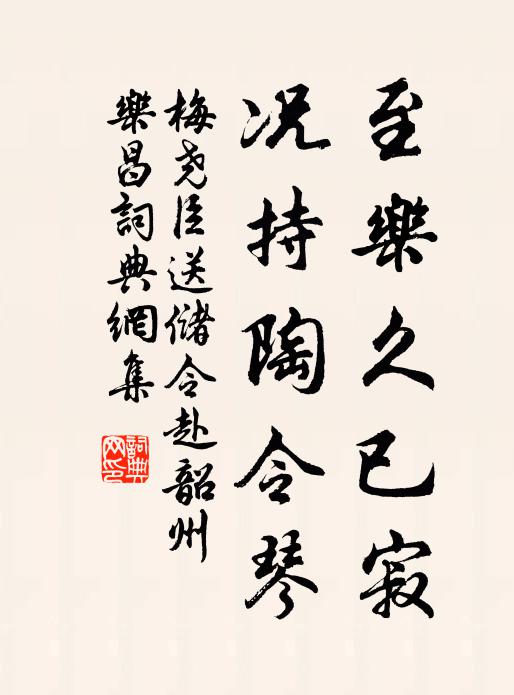 至樂久已寂
况持陶令琴
梅尧臣送儲令赴韶州
樂昌詞典網集
詞典网印